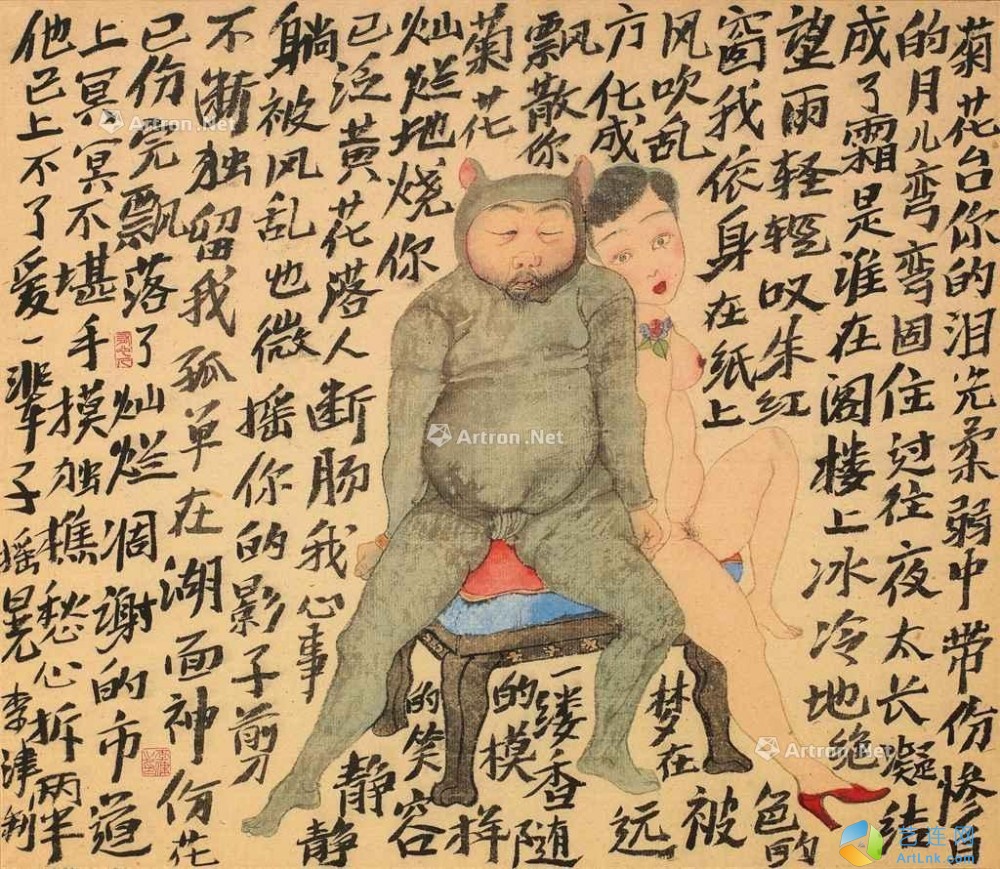 菊花台你的泪光柔弱中带份惨白
的月儿弯弯固住过往夜太长凝结
成了霜是谁在阁楼上冰冷地绝
望雨轻轻叹朱红色的
窗我依身在纸上被
风吹乱梦在远
方化成一缕香随
风飘散你的模样
菊花
灿烂地烧你的笑容
已泛黄花落人断肠我心事静静
躺被风乱也微摇你的影子剪
不断独留我孤单在湖面神份花
已份完飘落了灿烂凋谢的市道
上冥冥不堪手摸独憔愁心拆两半
他已上不了爱一辈子摇晃 李津制
Artron.Net
Artron.Net
Artron.Net
Artron.Net
艺连网
ArtLnk.com